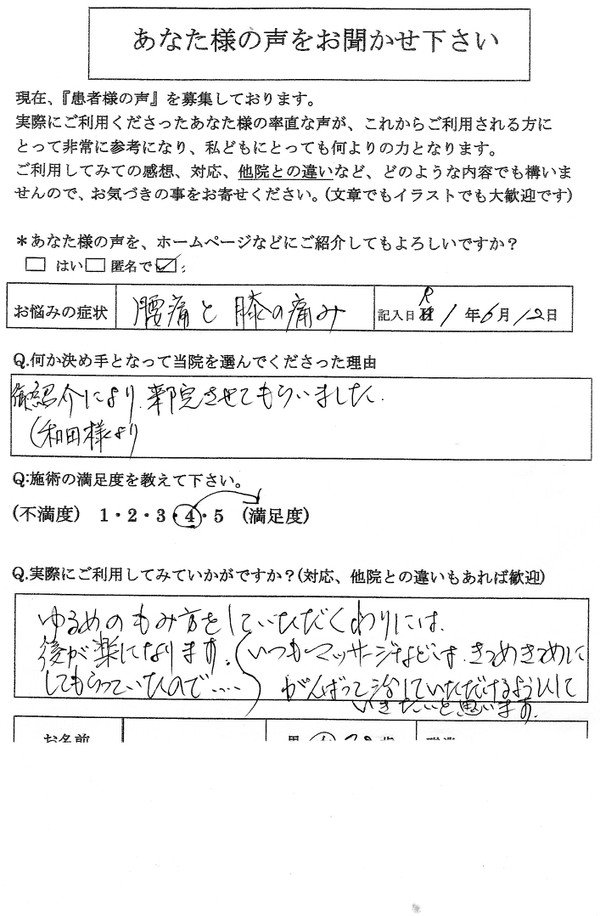 あなた様の声をお聞かせ下さい
現在、『患者様の声』を募集しております。
実際にご利用くださったあなた様の率直な声が、これからご利用される方に
とって非常に参考になり、私どもにとっても何よりの力となります。
ご利用してみての感想、対応、他院との違いなど、どのような内容でも構いま
せんので、お気づきの事をお寄せください。(文章でもイラストでも大歓迎です)
＊あなた様の声を、ホームページなどにご紹介してもよろしいですか？
はい 匿名で
お悩みの症状 腰痛と膝の痛み 記入日 R1年6月12日
Q.何か決め手となって当院を選んでくださった理由
御紹介により、来院させてもらいました。
(和田様より
Q:施術の満足度を教えて下さい。
(不満度) 1・2・3・4・5 (満足度)
Q.実際にご利用してみていかがですか？(対応、他院との違いもあれば歓迎)
ゆるめのもみ方をしていただくわりには、
後が楽になります。(いつもマッサージなどは、きつめきつめに
してもらっていたので‥‥ がんばって治していただけるようにして
いきたいと思います。
お名前